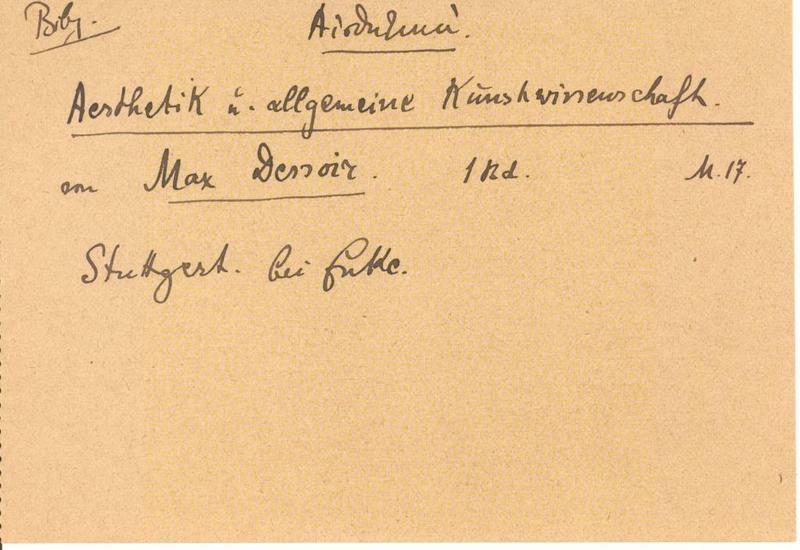 Bibg.
Aesthetik u. allgemeine Kunstwissenschaft.
von Max Dessoir. 1 Bd. M. 17.
Stuttgart. bei Enke.